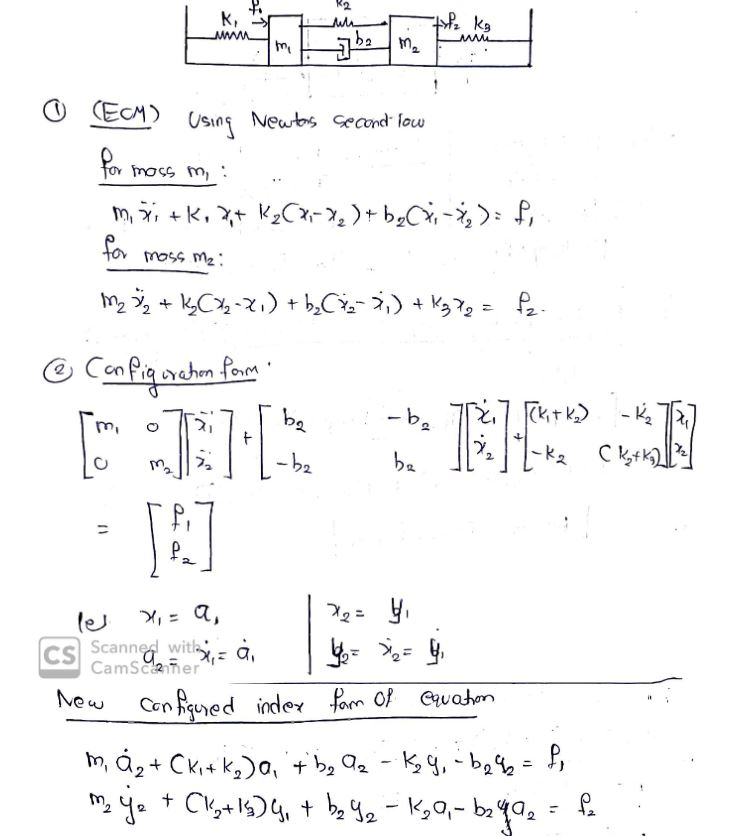 K₁ f₁ K₂ f₂ K₃
m₁ b₂ m₂
① (ECM) Using Newtos second low
for mass m₁ :
m₁ ẍ₁ + K₁ x₁ + K₂(x₁-x₂) + b₂(ẋ₁-ẋ₂) = f₁
for mass m₂ :
m₂ ẍ₂ + k₂(x₂-x₁) + b₂(ẋ₂-ẋ₁) + K₃x₂ = f₂.
② Configuration form
[m₁ 0 [ẍ₁ + [b₂ -b₂ [ẋ₁ + [(k₁+k₂) -K₂ [x₁
0 m₂] ẍ₂] -b₂ b₂] ẋ₂] -k₂ (k₂+k₃)] x₂]
= [f₁
f₂]
let x₁ = a₁ | x₂ = y₁
a₂ = ẋ₁ = ȧ₁ | y₂ = ẋ₂ = ẏ₁
CS Scanned with
CamScanner
New configured index form of equation
m₁ ȧ₂ + (K₁+k₂)a₁ + b₂ a₂ - k₂y₁ - b₂y₂ = f₁
m₂ ẏ₂ + (k₂+k₃)y₁ + b₂ y₂ - k₂a₁ - b₂a₂ = f₂